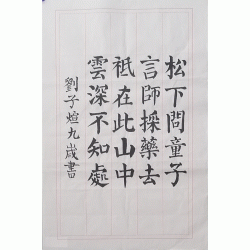 松下問童子
言師採藥去
祗在此山中
雲深不知處
劉子煊九歲書